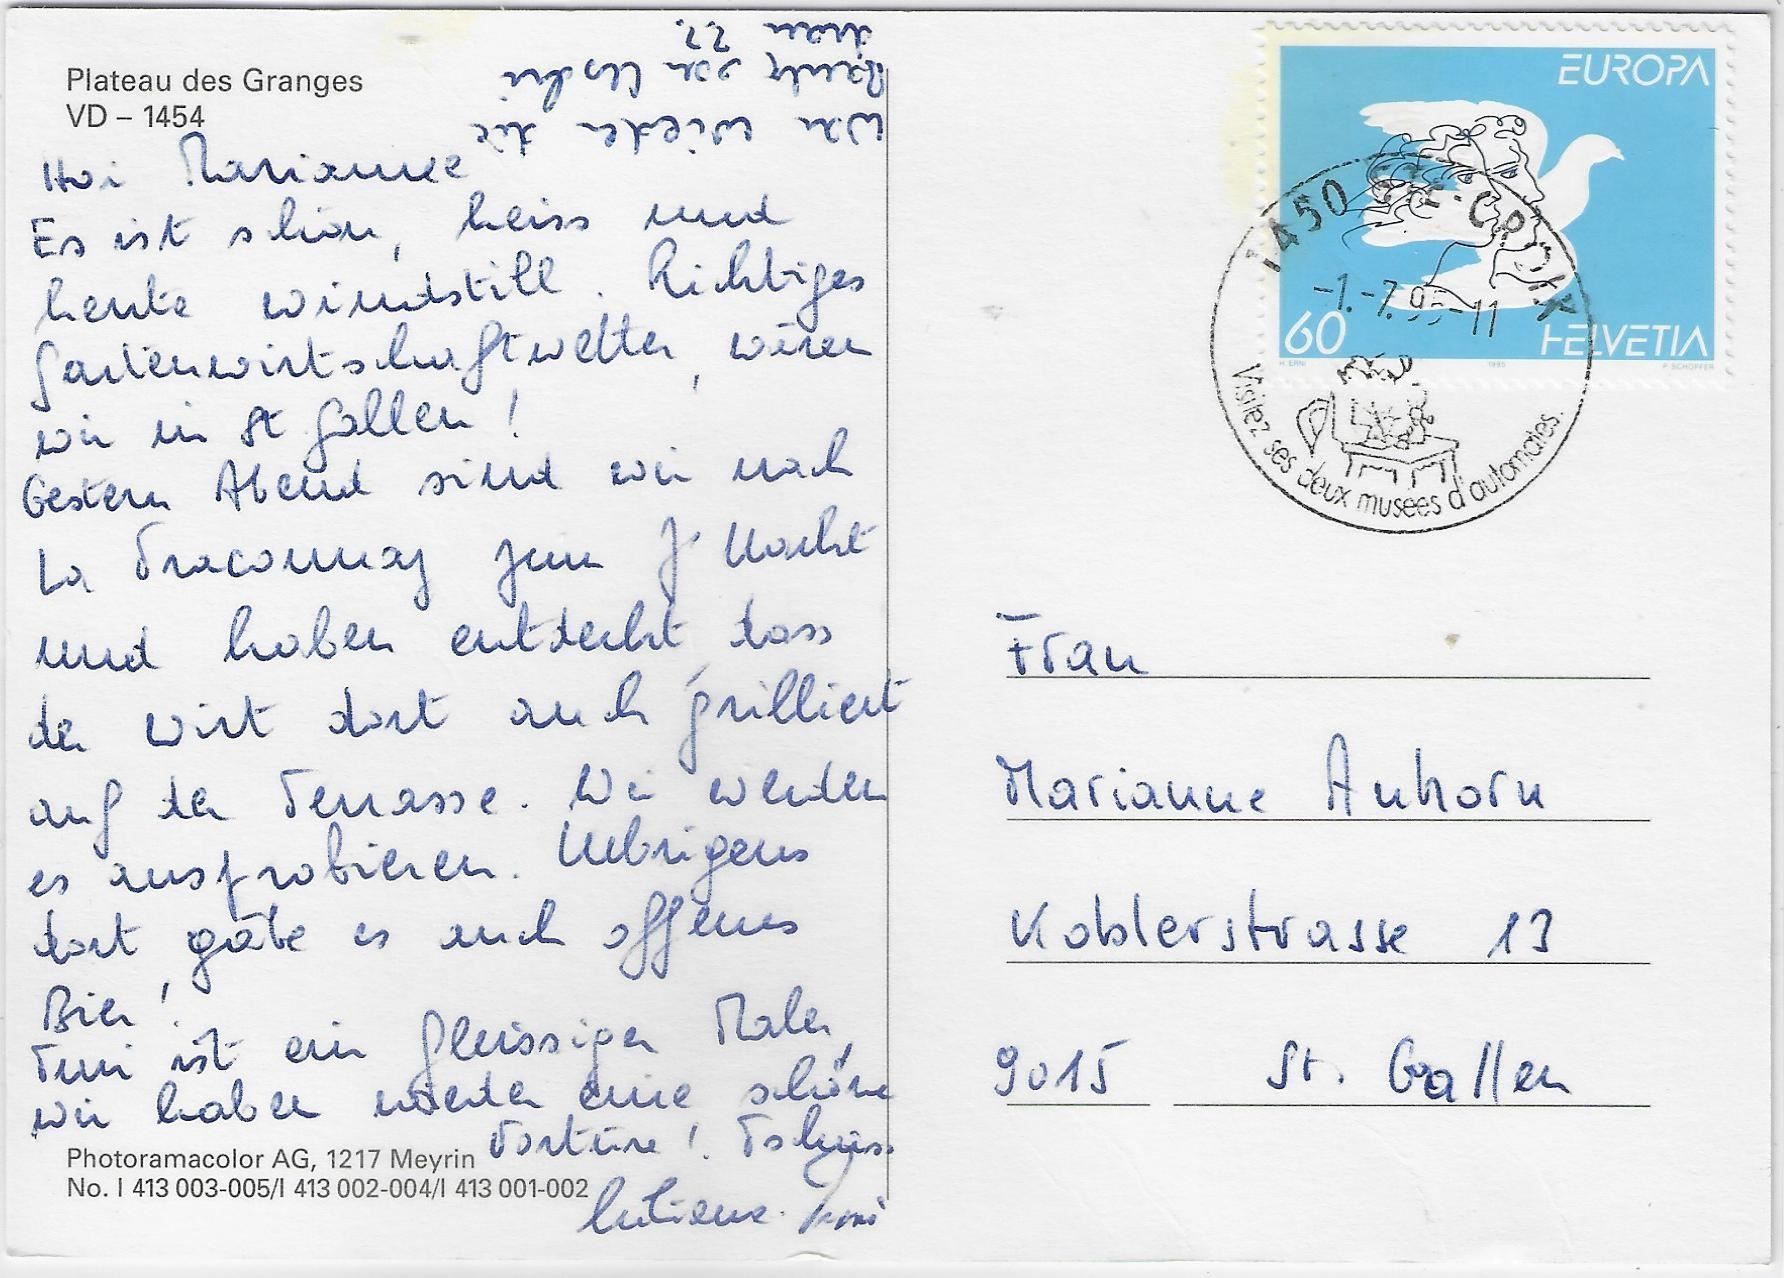 Plateau des Granges
VD – 1454
Hoi Marianne
Es ist schön, heiss und
heute windstill. Richtiges
Gartenwirtschaftwetter, wären
wir in St Gallen!
Gestern Abend sind wir nach
La Traconnay zum z'Nacht
und haben entdeckt, dass
der Wirt dort auch grilliert
auf der Terrasse. Wir werden
es ausprobieren. Uebrigens
dort gäbe es auch offenes
Bier!
Tuni ist ein fleissiger Maler,
wir haben wieder eine schöne
Torture! Tschüss
War wieder die
von
dran ??
Photoramacolor AG, 1217 Meyrin
No. I 413 003-005/I 413 002-004/I 413 001-002
EUROPA
60
HELVETIA
H. ERNI
1995
P. SCHOPFER
1450 STE-CROIX
-1.-7.95-11
Visitez ses deux musées d'automates.
Frau
Marianne Anhorn
Koblerstrasse 13
9015 St. Gallen